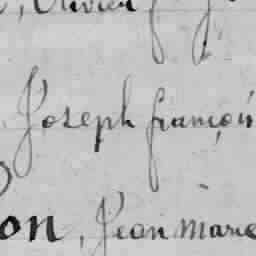 , Olivier
Joseph françois
on, Jean Marie